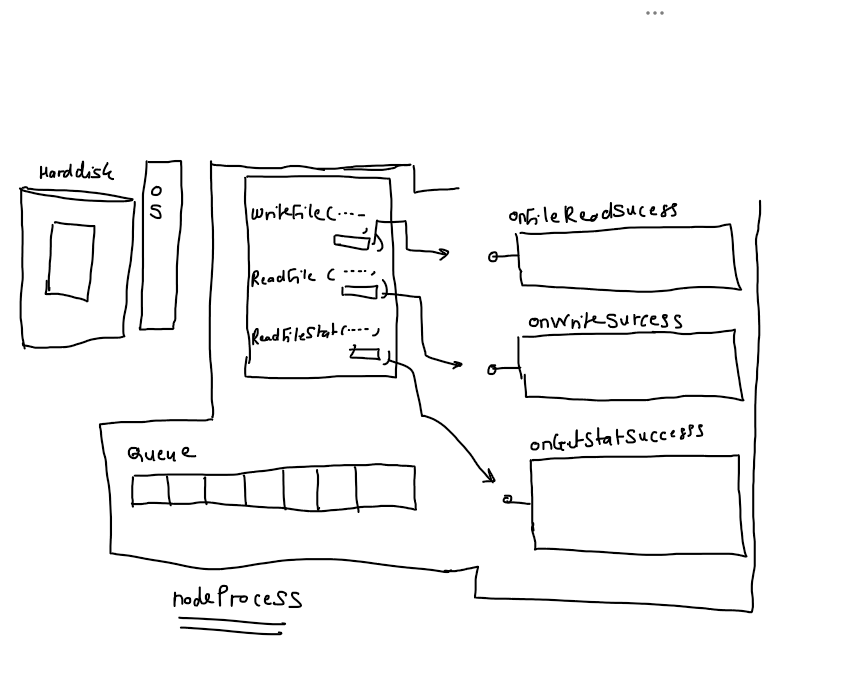 Harddisk
OS
WriteFile(----,
)
ReadFile (----,
)
ReadFileStat(----,
)
onFileReadSucess
onWriteSurcess
onGetStatSuccesss
Queue
nodeProcess